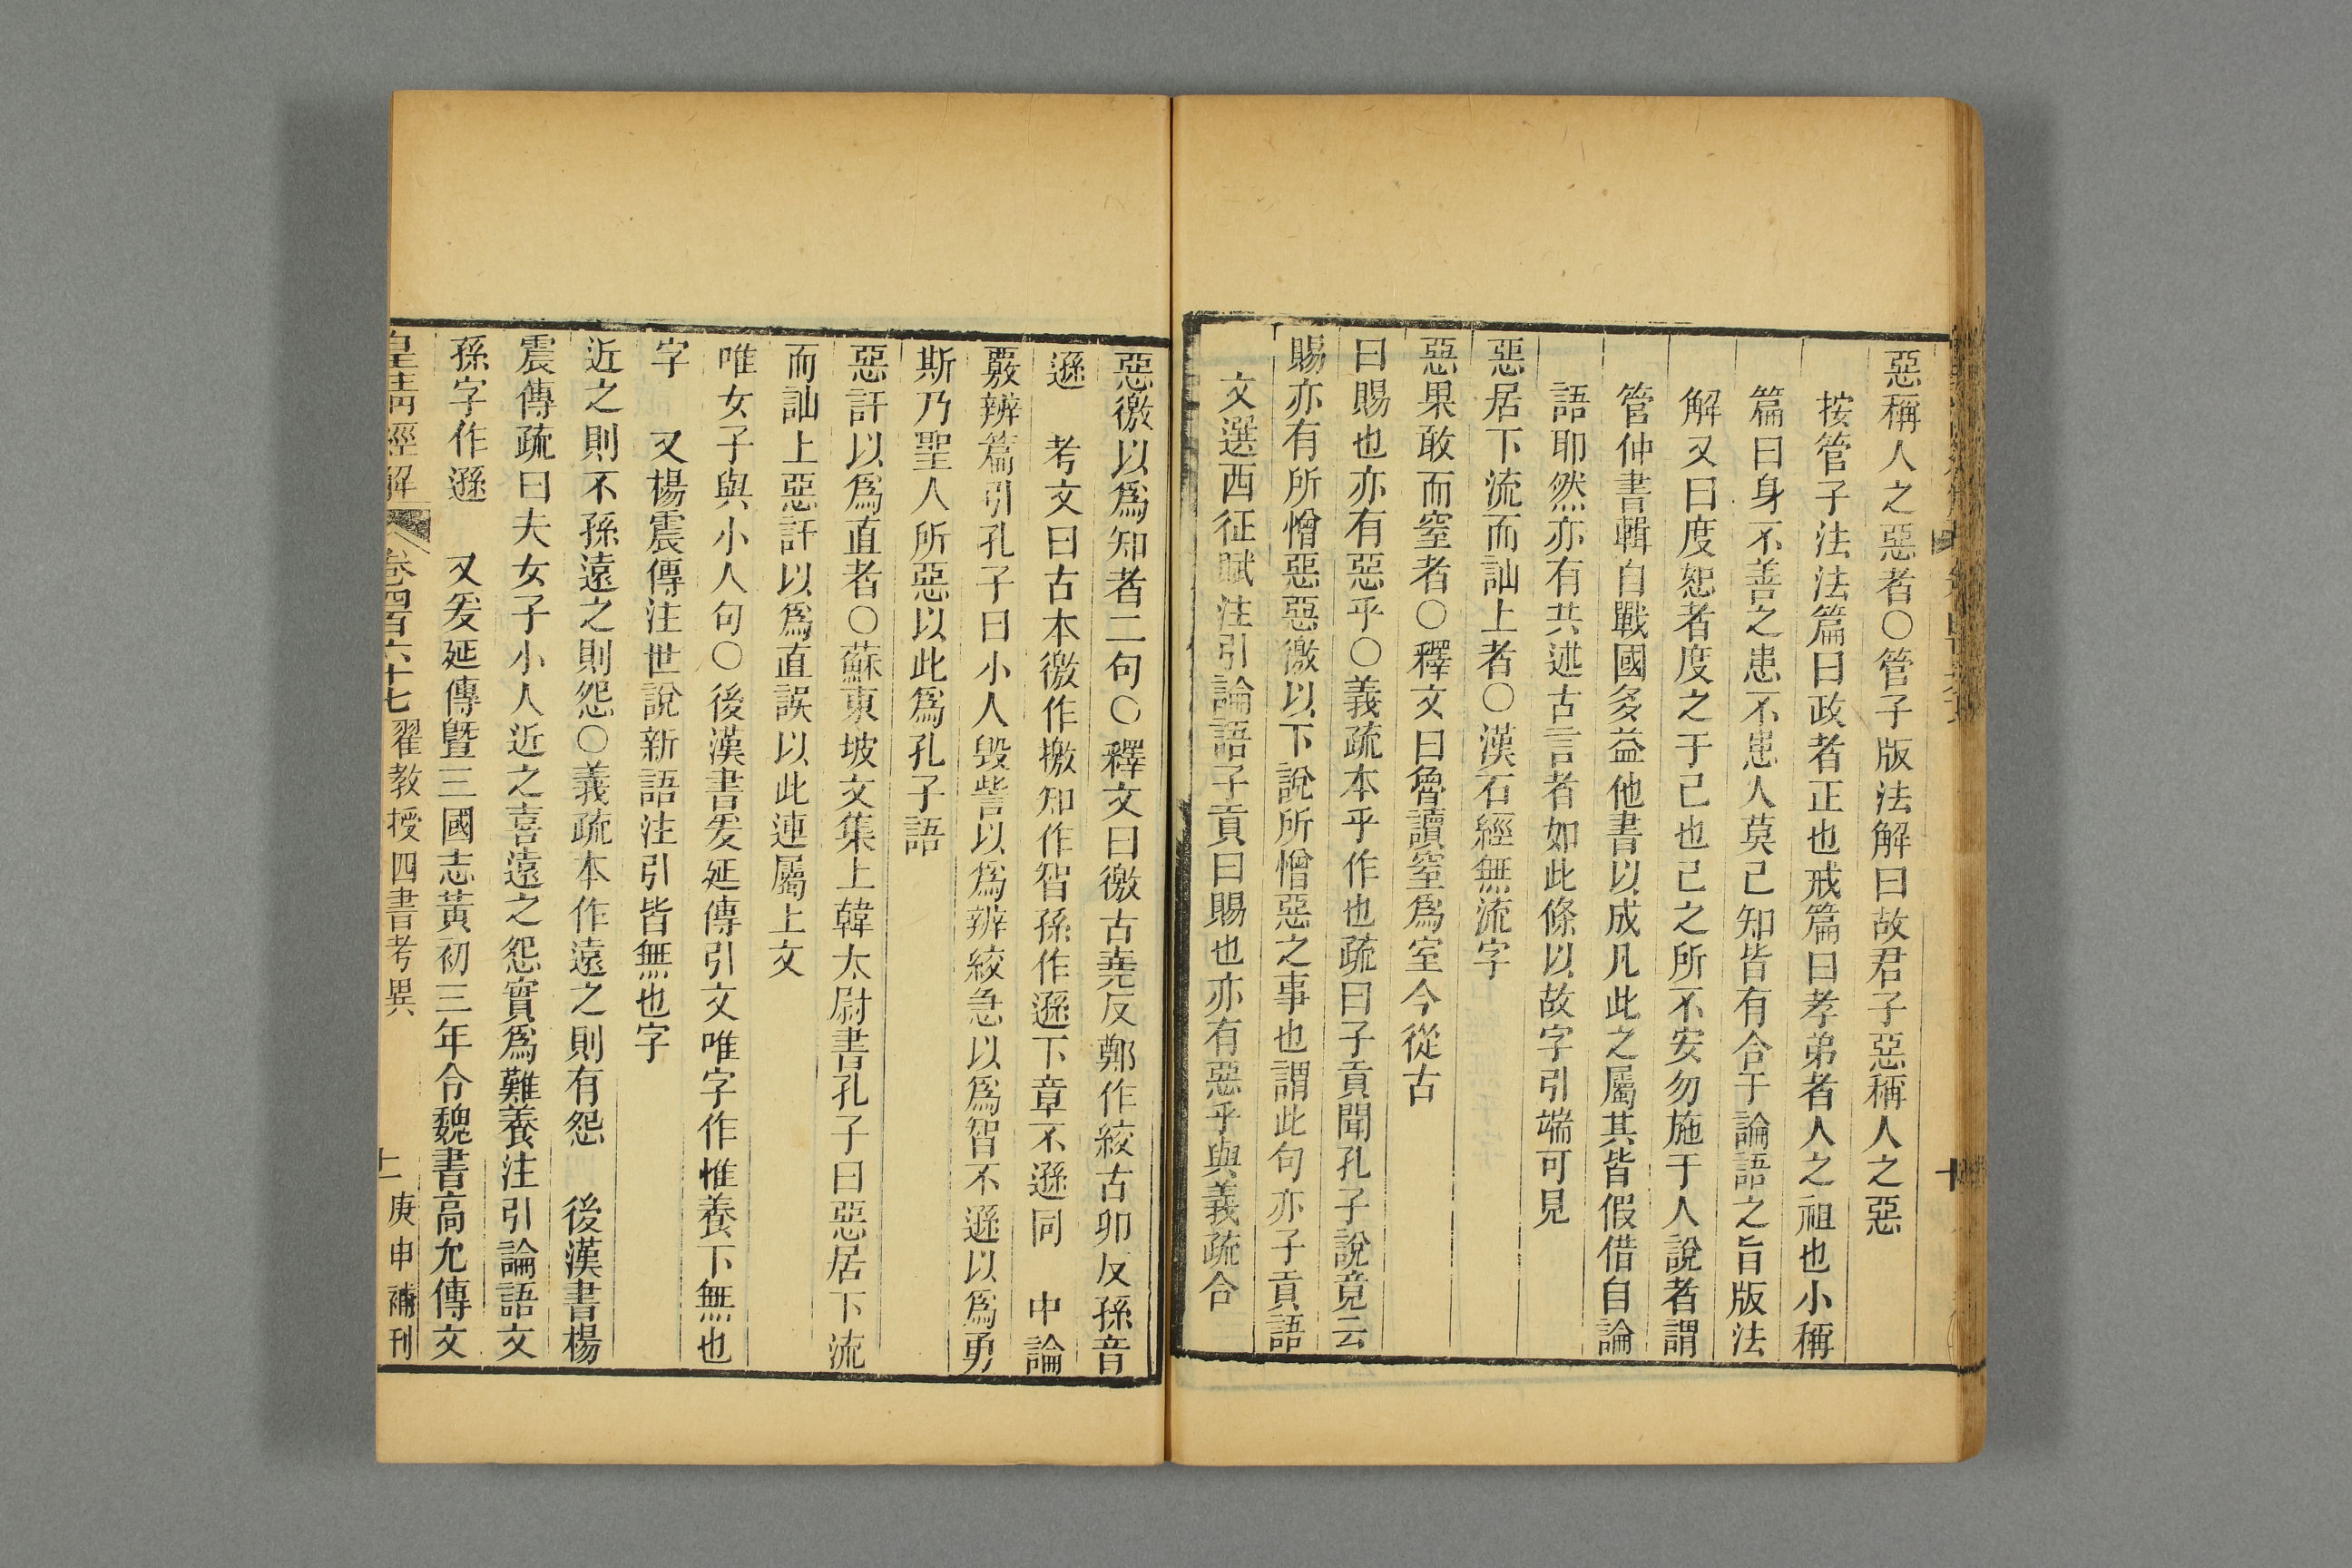 惡稱人之惡者○管子版法解曰故君子惡稱人之惡
按管子法法篇曰政者正也戒篇曰孝弟者人之祖也小稱
篇曰身不善之患不患人莫己知皆有合于論語之旨版法
解又曰度恕者度之于己也己之所不安勿施于人說者謂
管仲書輯自戰國多益他書以成凡此之屬其皆假借自論
語耶然亦有共述古言者如此條以故字引端可見
惡居下流而訕上者○漢石經無流字
惡果敢而窒者○釋文曰魯讀窒爲室今從古
曰賜也亦有惡乎○義疏本乎作也疏曰子貢聞孔子說竟云
賜亦有所憎惡惡徼以下說所憎惡之事也謂此句亦子貢語
文選西征賦注引論語子貢曰賜也亦有惡乎與義疏合
惡徼以爲知者二句○釋文曰徼古堯反鄭作絞古卯反孫音
遜　考文曰古本徼作撽知作智孫作遜下章不遜同　中論
覈辨篇引孔子曰小人毀訾以爲辨絞急以爲智不遜以爲勇
斯乃聖人所惡以此爲孔子語
惡訐以爲直者○蘇東坡文集上韓太尉書孔子曰惡居下流
而訕上惡訐以爲直誤以此連屬上文
唯女子與小人句○後漢書爰延傳引文唯字作惟養下無也
字　又楊震傳注世說新語注引皆無也字
近之則不孫遠之則怨○義疏本作遠之則有怨　後漢書楊
震傳疏曰夫女子小人近之喜遠之怨實爲難養注引論語文
孫字作遜　又爰延傳曁三國志黃初三年令魏書高允傳文
皇淸經解　卷四百六十七　翟教授四書考異　庚申補刊